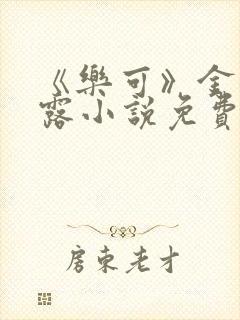 《樂可》金
露小說免費
房東老才